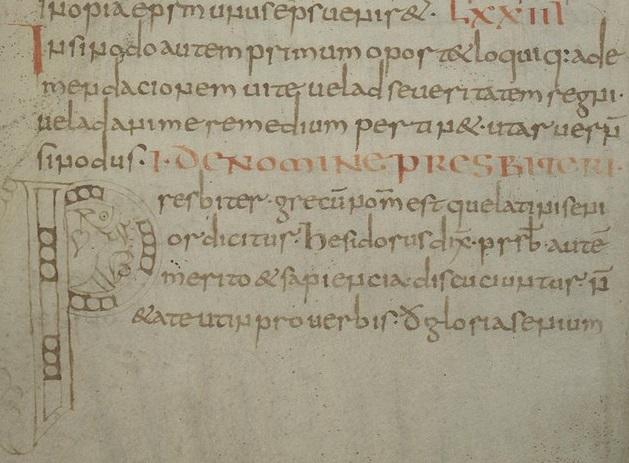 inopia epsm unus eps uenis&. Lxxiii
In sinodo autem primum oport& loqui q: ad e
mendacionem uite uel ad seueritatem regni.
uel ad anime remedium pertin&. ut as uerū
sinodus. I. DE NOMINE PRESBITERI.
Presbiter. grecū nom̄ est que latini seni
or dicitur. hesidorus dix̄. prsb̄. autē
merito & sapiencia. discuciuntur. n̄
&ate ut in prouerbis. gloria senium